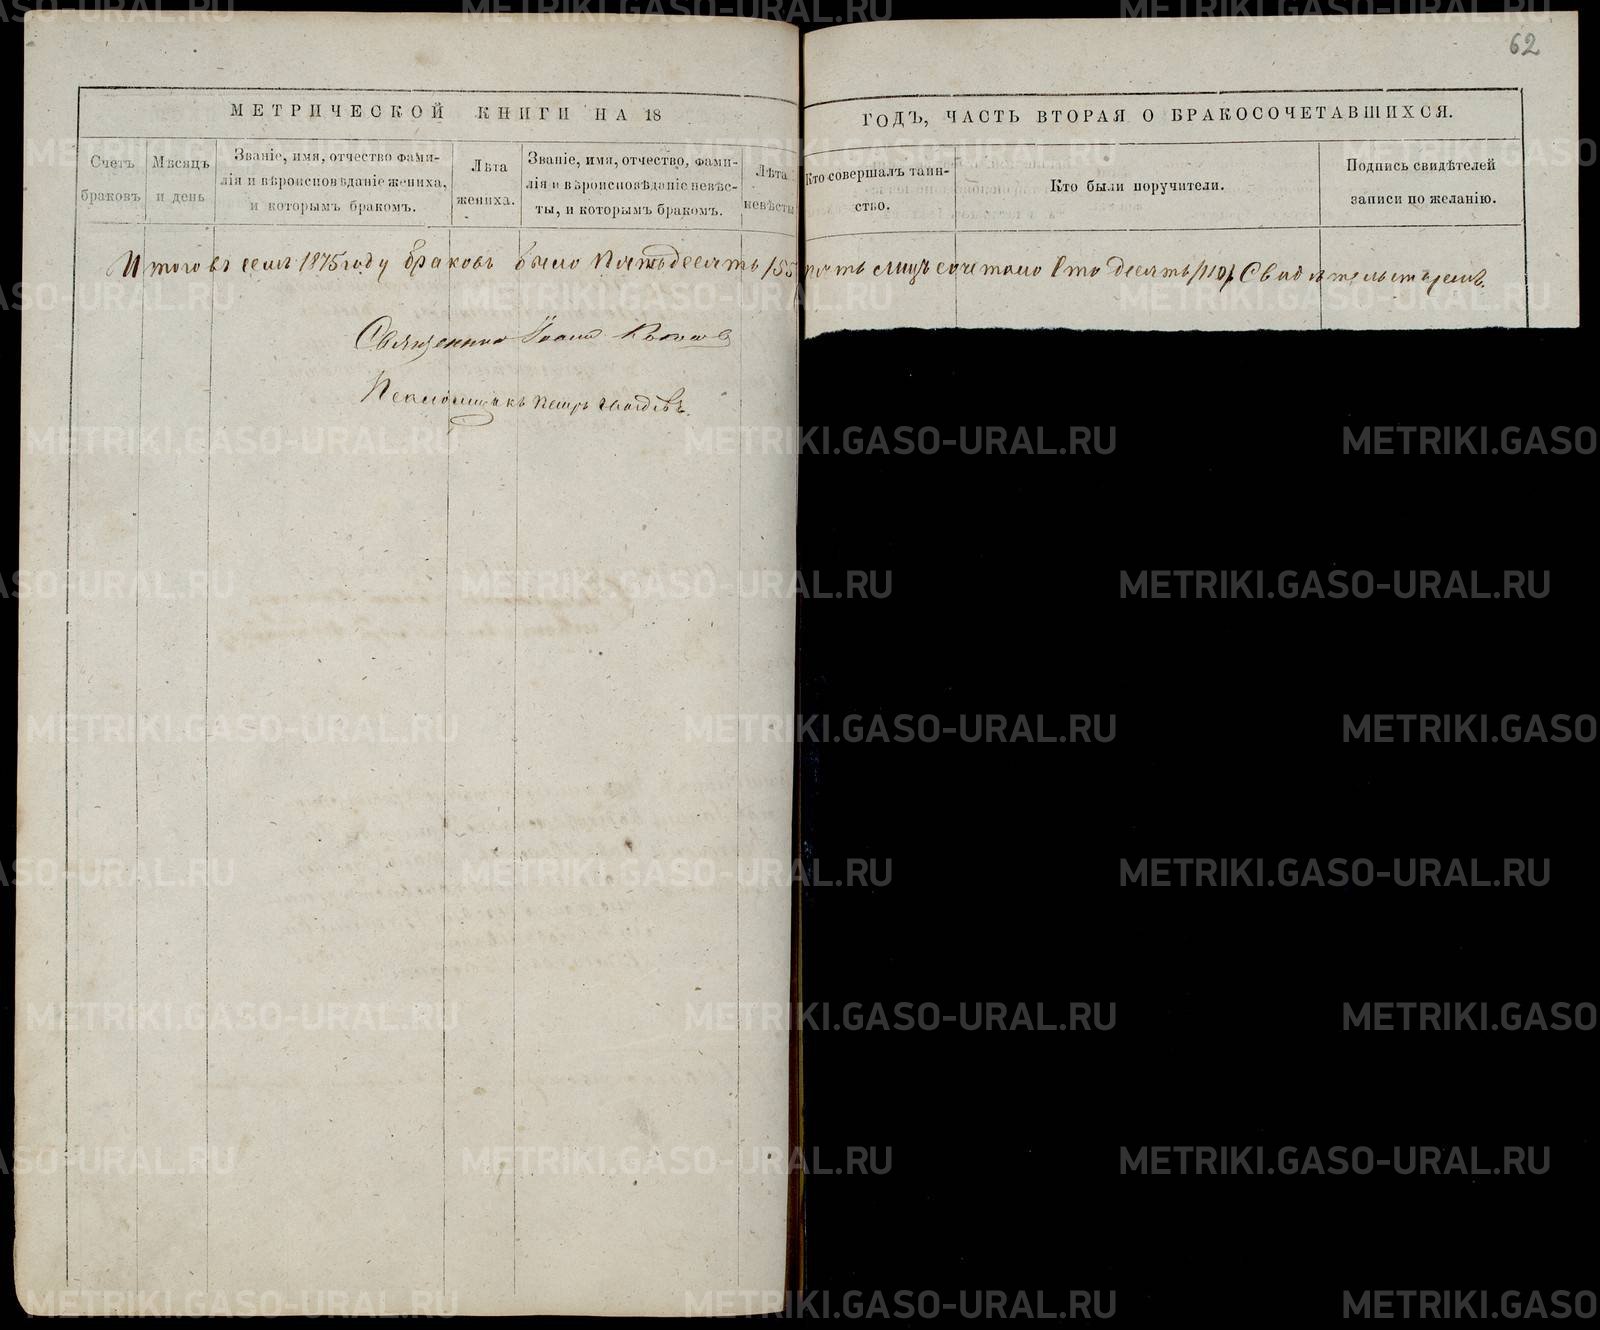 62
МЕТРИЧЕСКОЙ КНИГИ НА 18 ГОДЪ, ЧАСТЬ ВТОРАЯ О БРАКОСОЧЕТАВШИХСЯ.
Счетъ браковъ
Мѣсяцъ и день
Званіе, имя, отчество фами-
лія и вѣроисповѣданіе жениха,
и которымъ бракомъ.
Лѣта
жениха.
Званіе, имя, отчество, фами-
лія и вѣроисповѣданіе невѣс-
ты, и которымъ бракомъ.
Лѣта
невѣсты
Кто совершалъ таин-
ство.
Кто были поручители.
Подпись свидѣтелей
записи по желанію.
Итого въ семъ 1875 году браковъ было пятьдесятъ /55 пять лицъ сочетано сто десять /110/ Свидѣтельствуемъ.
Священникъ Іоаннъ
Псаломщикъ Петръ
METRIKI.GASO-URAL.RU